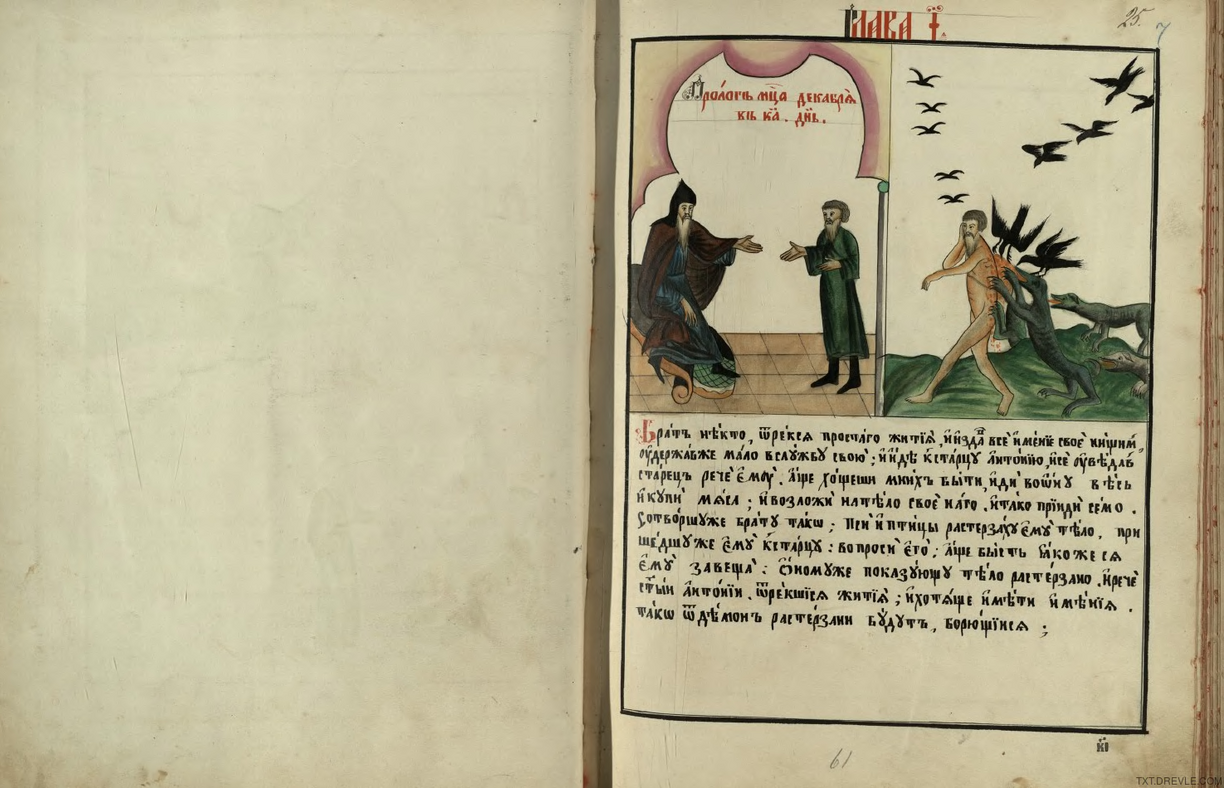 Глава і҃.
25.
7
Проло́гъ мц҃а декабрѧ̀
въ ка҃. дн҃ь.
Бра́тъ нѣ́кто, ѿре́ксѧ проста́го житїѧ̀, и҆ и҆зда̀ всѐ и҆мѣ́нїе своѐ ни́щим
ᲂу҆держа́вже ма́ло вслꙋ́жбꙋ свою̀; и҆ и҆́де кста́рцꙋ а҆нто́нїю, и҆сѐ ᲂу҆вѣ́давъ
ста́рецъ речѐ є҆мꙋ̀. а҆́ще хо́щеши мни́хъ бы́ти, и҆дѝ во ве́сь
и҆ кꙋпѝ мѧ́са; и҆ возложѝ на тѣ́ло своѐ на́го. и҆ та́ко прїидѝ сѣ́мо.
Сотво́ршꙋже бра́тꙋ та́кѡ; псѝ и҆ пти́цы растерза́хꙋ є҆мꙋ̀ тѣ́ло, при
ше́дшꙋже є҆мꙋ̀ кста́рцꙋ: вопросѝ є҆го̀; а҆́ще бы́сть ꙗ҆́коже сѧ
є҆мꙋ̀ завеща̀: Ѻ҆номꙋже показꙋ́ющꙋ тѣ́ло расте́рзано. и҆ речѐ
ст҃ы́и а҆нто́нїи. ѿре́кшїисѧ житїѧ̀; и҆ хотѧ́ще и҆мѣ́ти и҆мѣ́нїѧ.
та́кѡ ѿ де́монъ расте́рзани бꙋ́дꙋтъ, борю́щїисѧ;
61
TXT.DREVLE.COM